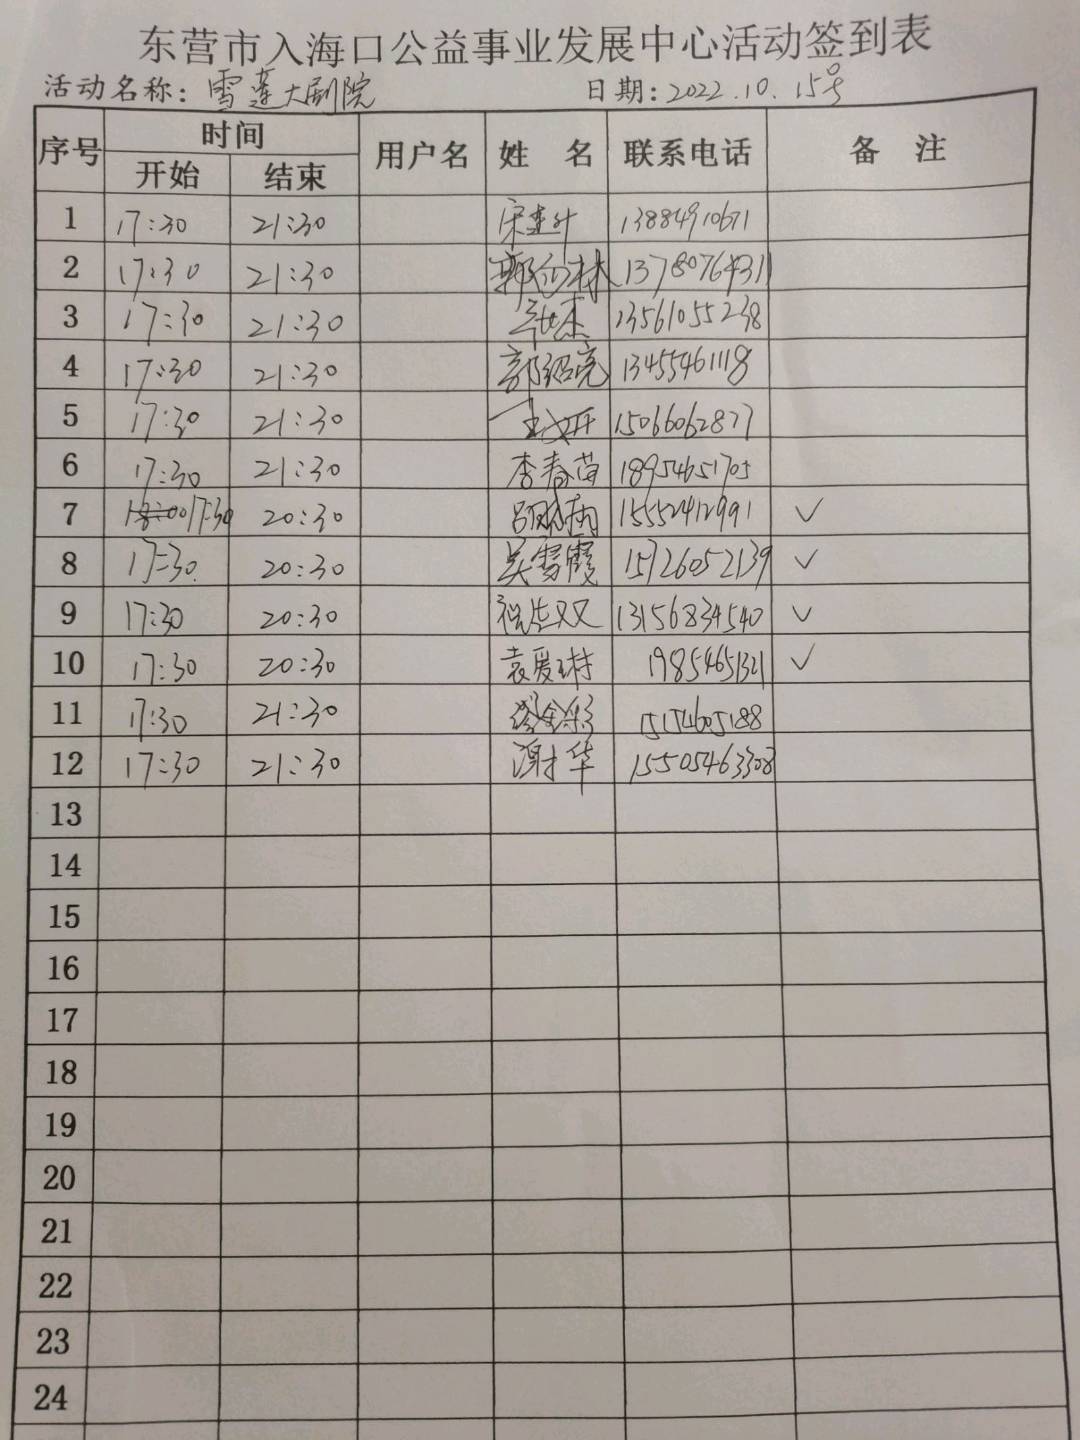 东营市入海口公益事业发展中心活动签到表
活动名称：雪莲大剧院 日期：2022.10.15号
序号 时间 用户名 姓 名 联系电话 备 注
开始 结束
1 17:30 21:30 13884910671
2 17:30 21:30 13780764311
3 17:30 21:30 13561055238
4 17:30 21:30 郭绍亮 13455461118
5 17:30 21:30 15066062877
6 17:30 21:30 李春苗 18954651705
7 17:30 20:30 15552412991 ✓
8 17:30 20:30 吴雪霞 15726052139 ✓
9 17:30 20:30 13156834540 ✓
10 17:30 20:30 袁爱琳 19854651321 ✓
11 17:30 21:30 15154605188
12 17:30 21:30 谢才华 15505463308
13
14
15
16
17
18
19
20
21
22
23
24